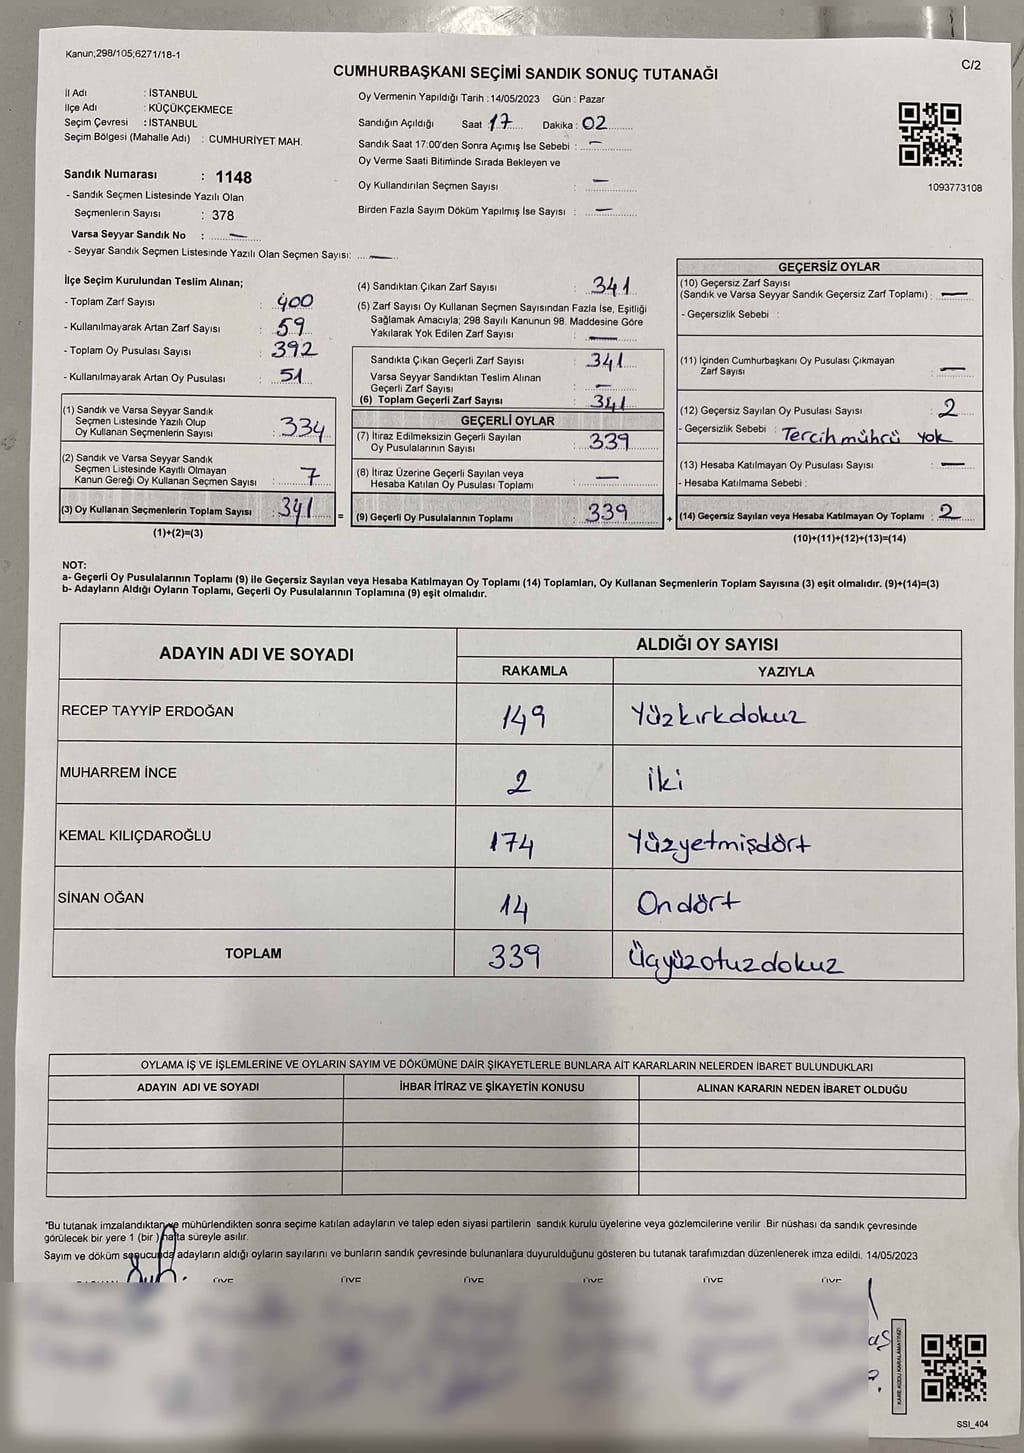 Kanun;298/105;6271/18-1
C/2
CUMHURBAŞKANI SEÇİMİ SANDIK SONUÇ TUTANAĞI
İl Adı : İSTANBUL
İlçe Adı : KÜÇÜKÇEKMECE
Seçim Çevresi : İSTANBUL
Seçim Bölgesi (Mahalle Adı) : CUMHURİYET MAH.
Sandık Numarası : 1148
- Sandık Seçmen Listesinde Yazılı Olan
Seçmenlerin Sayısı : 378
Varsa Seyyar Sandık No : —
- Seyyar Sandık Seçmen Listesinde Yazılı Olan Seçmen Sayısı: —
Oy Vermenin Yapıldığı Tarih : 14/05/2023 Gün : Pazar
Sandığın Açıldığı Saat : 17 Dakika : 02
Sandık Saat 17:00'den Sonra Açımış İse Sebebi : —
Oy Verme Saati Bitiminde Sırada Bekleyen ve
Oy Kullandırılan Seçmen Sayısı : —
Birden Fazla Sayım Döküm Yapılmış İse Sayısı : —
1093773108
İlçe Seçim Kurulundan Teslim Alınan;
- Toplam Zarf Sayısı : 400
- Kullanılmayarak Artan Zarf Sayısı : 59
- Toplam Oy Pusulası Sayısı : 392
- Kullanılmayarak Artan Oy Pusulası : 51
(1) Sandık ve Varsa Seyyar Sandık
Seçmen Listesinde Yazılı Olup
Oy Kullanan Seçmenlerin Sayısı : 334
(2) Sandık ve Varsa Seyyar Sandık
Seçmen Listesinde Kayıtlı Olmayan
Kanun Gereği Oy Kullanan Seçmen Sayısı : 7
(3) Oy Kullanan Seçmenlerin Toplam Sayısı : 341
(1)+(2)=(3)
(4) Sandıktan Çıkan Zarf Sayısı : 341
(5) Zarf Sayısı Oy Kullanan Seçmen Sayısından Fazla İse, Eşitliği
Sağlamak Amacıyla; 298 Sayılı Kanunun 98. Maddesine Göre
Yakılarak Yok Edilen Zarf Sayısı : —
Sandıkta Çıkan Geçerli Zarf Sayısı : 341
Varsa Seyyar Sandıktan Teslim Alınan
Geçerli Zarf Sayısı : —
(6) Toplam Geçerli Zarf Sayısı : 341
GEÇERLİ OYLAR
(7) İtiraz Edilmeksizin Geçerli Sayılan
Oy Pusulalarının Sayısı : 339
(8) İtiraz Üzerine Geçerli Sayılan veya
Hesaba Katılan Oy Pusulası Toplamı : —
= (9) Geçerli Oy Pusulalarının Toplamı : 339 +
GEÇERSİZ OYLAR
(10) Geçersiz Zarf Sayısı
(Sandık ve Varsa Seyyar Sandık Geçersiz Zarf Toplamı) : —
- Geçersizlik Sebebi :
(11) İçinden Cumhurbaşkanı Oy Pusulası Çıkmayan
Zarf Sayısı : —
(12) Geçersiz Sayılan Oy Pusulası Sayısı : 2
- Geçersizlik Sebebi : Tercih mührü yok
(13) Hesaba Katılmayan Oy Pusulası Sayısı : —
- Hesaba Katılmama Sebebi :
(14) Geçersiz Sayılan veya Hesaba Katılmayan Oy Toplamı : 2
(10)+(11)+(12)+(13)=(14)
NOT:
a- Geçerli Oy Pusulalarının Toplamı (9) ile Geçersiz Sayılan veya Hesaba Katılmayan Oy Toplamı (14) Toplamları, Oy Kullanan Seçmenlerin Toplam Sayısına (3) eşit olmalıdır. (9)+(14)=(3)
b- Adayların Aldığı Oyların Toplamı, Geçerli Oy Pusulalarının Toplamına (9) eşit olmalıdır.
ADAYIN ADI VE SOYADI
ALDIĞI OY SAYISI
RAKAMLA YAZIYLA
RECEP TAYYİP ERDOĞAN 149 Yüzkırkdokuz
MUHARREM İNCE 2 iki
KEMAL KILIÇDAROĞLU 174 Yüzyetmişdört
SİNAN OĞAN 14 Ondört
TOPLAM 339 Üçyüzotuzdokuz
OYLAMA İŞ VE İŞLEMLERİNE VE OYLARIN SAYIM VE DÖKÜMÜNE DAİR ŞİKAYETLERLE BUNLARA AİT KARARLARIN NELERDEN İBARET BULUNDUKLARI
ADAYIN ADI VE SOYADI İHBAR İTİRAZ VE ŞİKAYETİN KONUSU ALINAN KARARIN NEDEN İBARET OLDUĞU
*Bu tutanak imzalandıktan ve mühürlendikten sonra seçime katılan adayların ve talep eden siyasi partilerin sandık kurulu üyelerine veya gözlemcilerine verilir .Bir nüshası da sandık çevresinde
görülecek bir yere 1 (bir) hafta süreyle asılır.
Sayım ve döküm sonucunda adayların aldığı oyların sayılarını ve bunların sandık çevresinde bulunanlara duyurulduğunu gösteren bu tutanak tarafımızdan düzenlenerek imza edildi. 14/05/2023
ÜYE ÜYE ÜYE ÜYE ÜYE ÜYE
KARE KODU KARALAMAYINIZ!
SSI_404